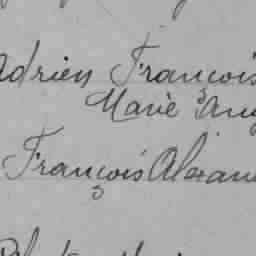 Adrien François
Marie Aug
François Alexan